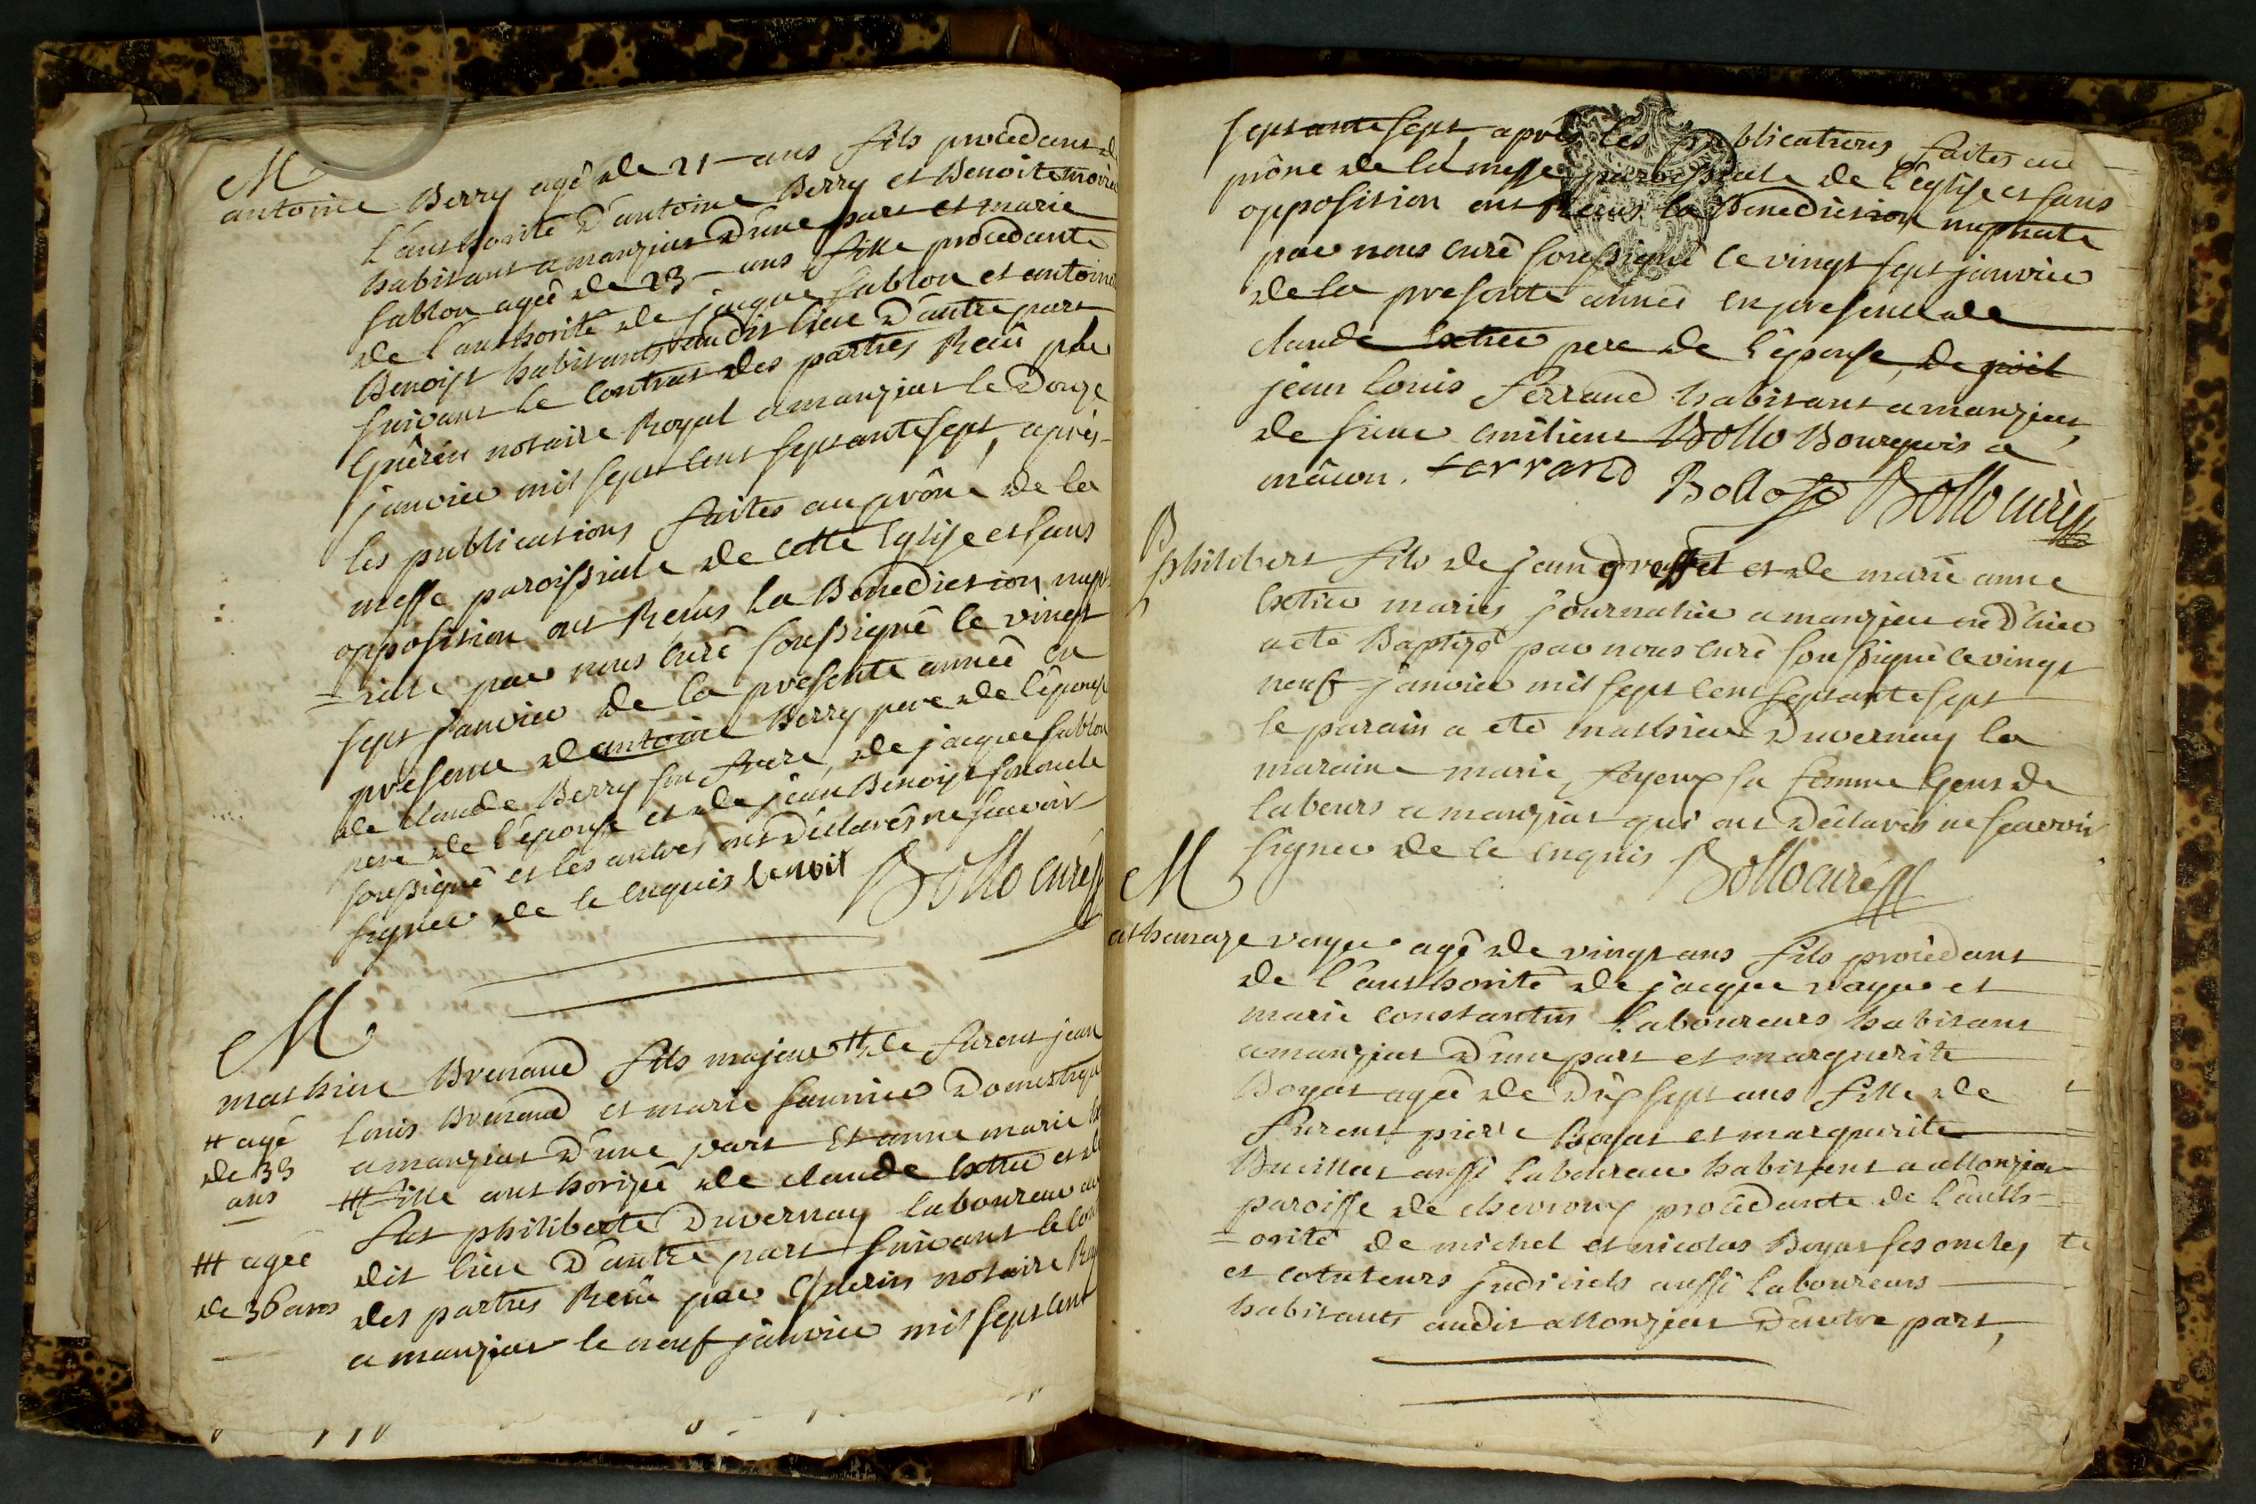 M
antoine Berry agé de 21 ans fils procedant de
l'authorité d'antoine Berry et Benoite
habitant a manziat d'une part et marie
sablon ageé de 23 ans fille procedante
de l'authorité de jacque sablon et antoine
Benoist habitants audit lieu d'autre part
suivant le contrat des parties Reçû par
Guérin notaire Royal a manziat le douze
janvier mil sept cent septante sept, après
les publications faites au prône de la
messe paroissiale de cette Eglise et sans
opposition ont Recus la Benediction nupt
=iale par nous curé soussigné le vingt
sept janvier de la presente année en
presence de antoine Berry pere de l'epoux
de claude Berry son frere, de jacque sablon
pere de l'epouse et de jean Benoist son oncle
soussigné et les autres ont déclarés ne sçavoir
signer de ce enquis benoit Bollo curé
M
mathieu Brenaud fils majeur # de furent jean
# agé
de 33
ans
louis Brenaud et marie saunier domestique
a manziat d'une part Et anne marie
# fille authorizeé de claude et de
fut philiberte Duvernay laboureur au
## ageé
de 36 ans
dit lieu d'autre part suivant le con
des parties Reçû par Guérin notaire Roy
a manziat le neuf janvier mil sept cent
septante sept, après les publications faites au
prône de la messe paroissiale de l'eglise et sans
opposition ont Recus la Benediction nuptiale
par nous curé soussigné le vingt sept janvier
de la presente année en presence de
claude pere de l'épouse, de
jean louis ferrand habitant a manziat,
de sieur emiliens Bollo Bourgeois a
mâcon. ferrand Bollo Bollo curé
B
philibert fils de jean greffet et de marie anne
mariés journalier a manziat né d'hier
a eté Baptizé par nous curé soussigné le vingt
neuf janvier mil sept cent septante sept
le parain a eté mathieu Duvernay la
maraine marie feyeux sa femme gens de
labeurs a manziat qui ont déclarés ne sçavoir
signer de ce enquis Bollo curé
M
athanaze voyer agé de vingt ans fils procédant
de l'authorité de jacque et
marie constantin laboureurs habitant
a manziat d'une part et marguerite
Boyat ageé de dix sept ans fille de
furent pierre Boyat et marguerite
aussi laboureur habitant a
paroisse de chevroux procédante de l'auth=
=orité de michel et nicolas Boyat ses oncles,
et cotuteurs judiciels aussi laboureurs
habitants audit d'autre part,